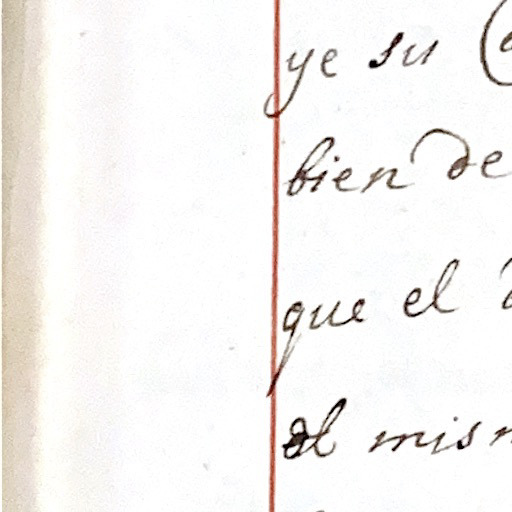 ye su
bien de
que el
al mism